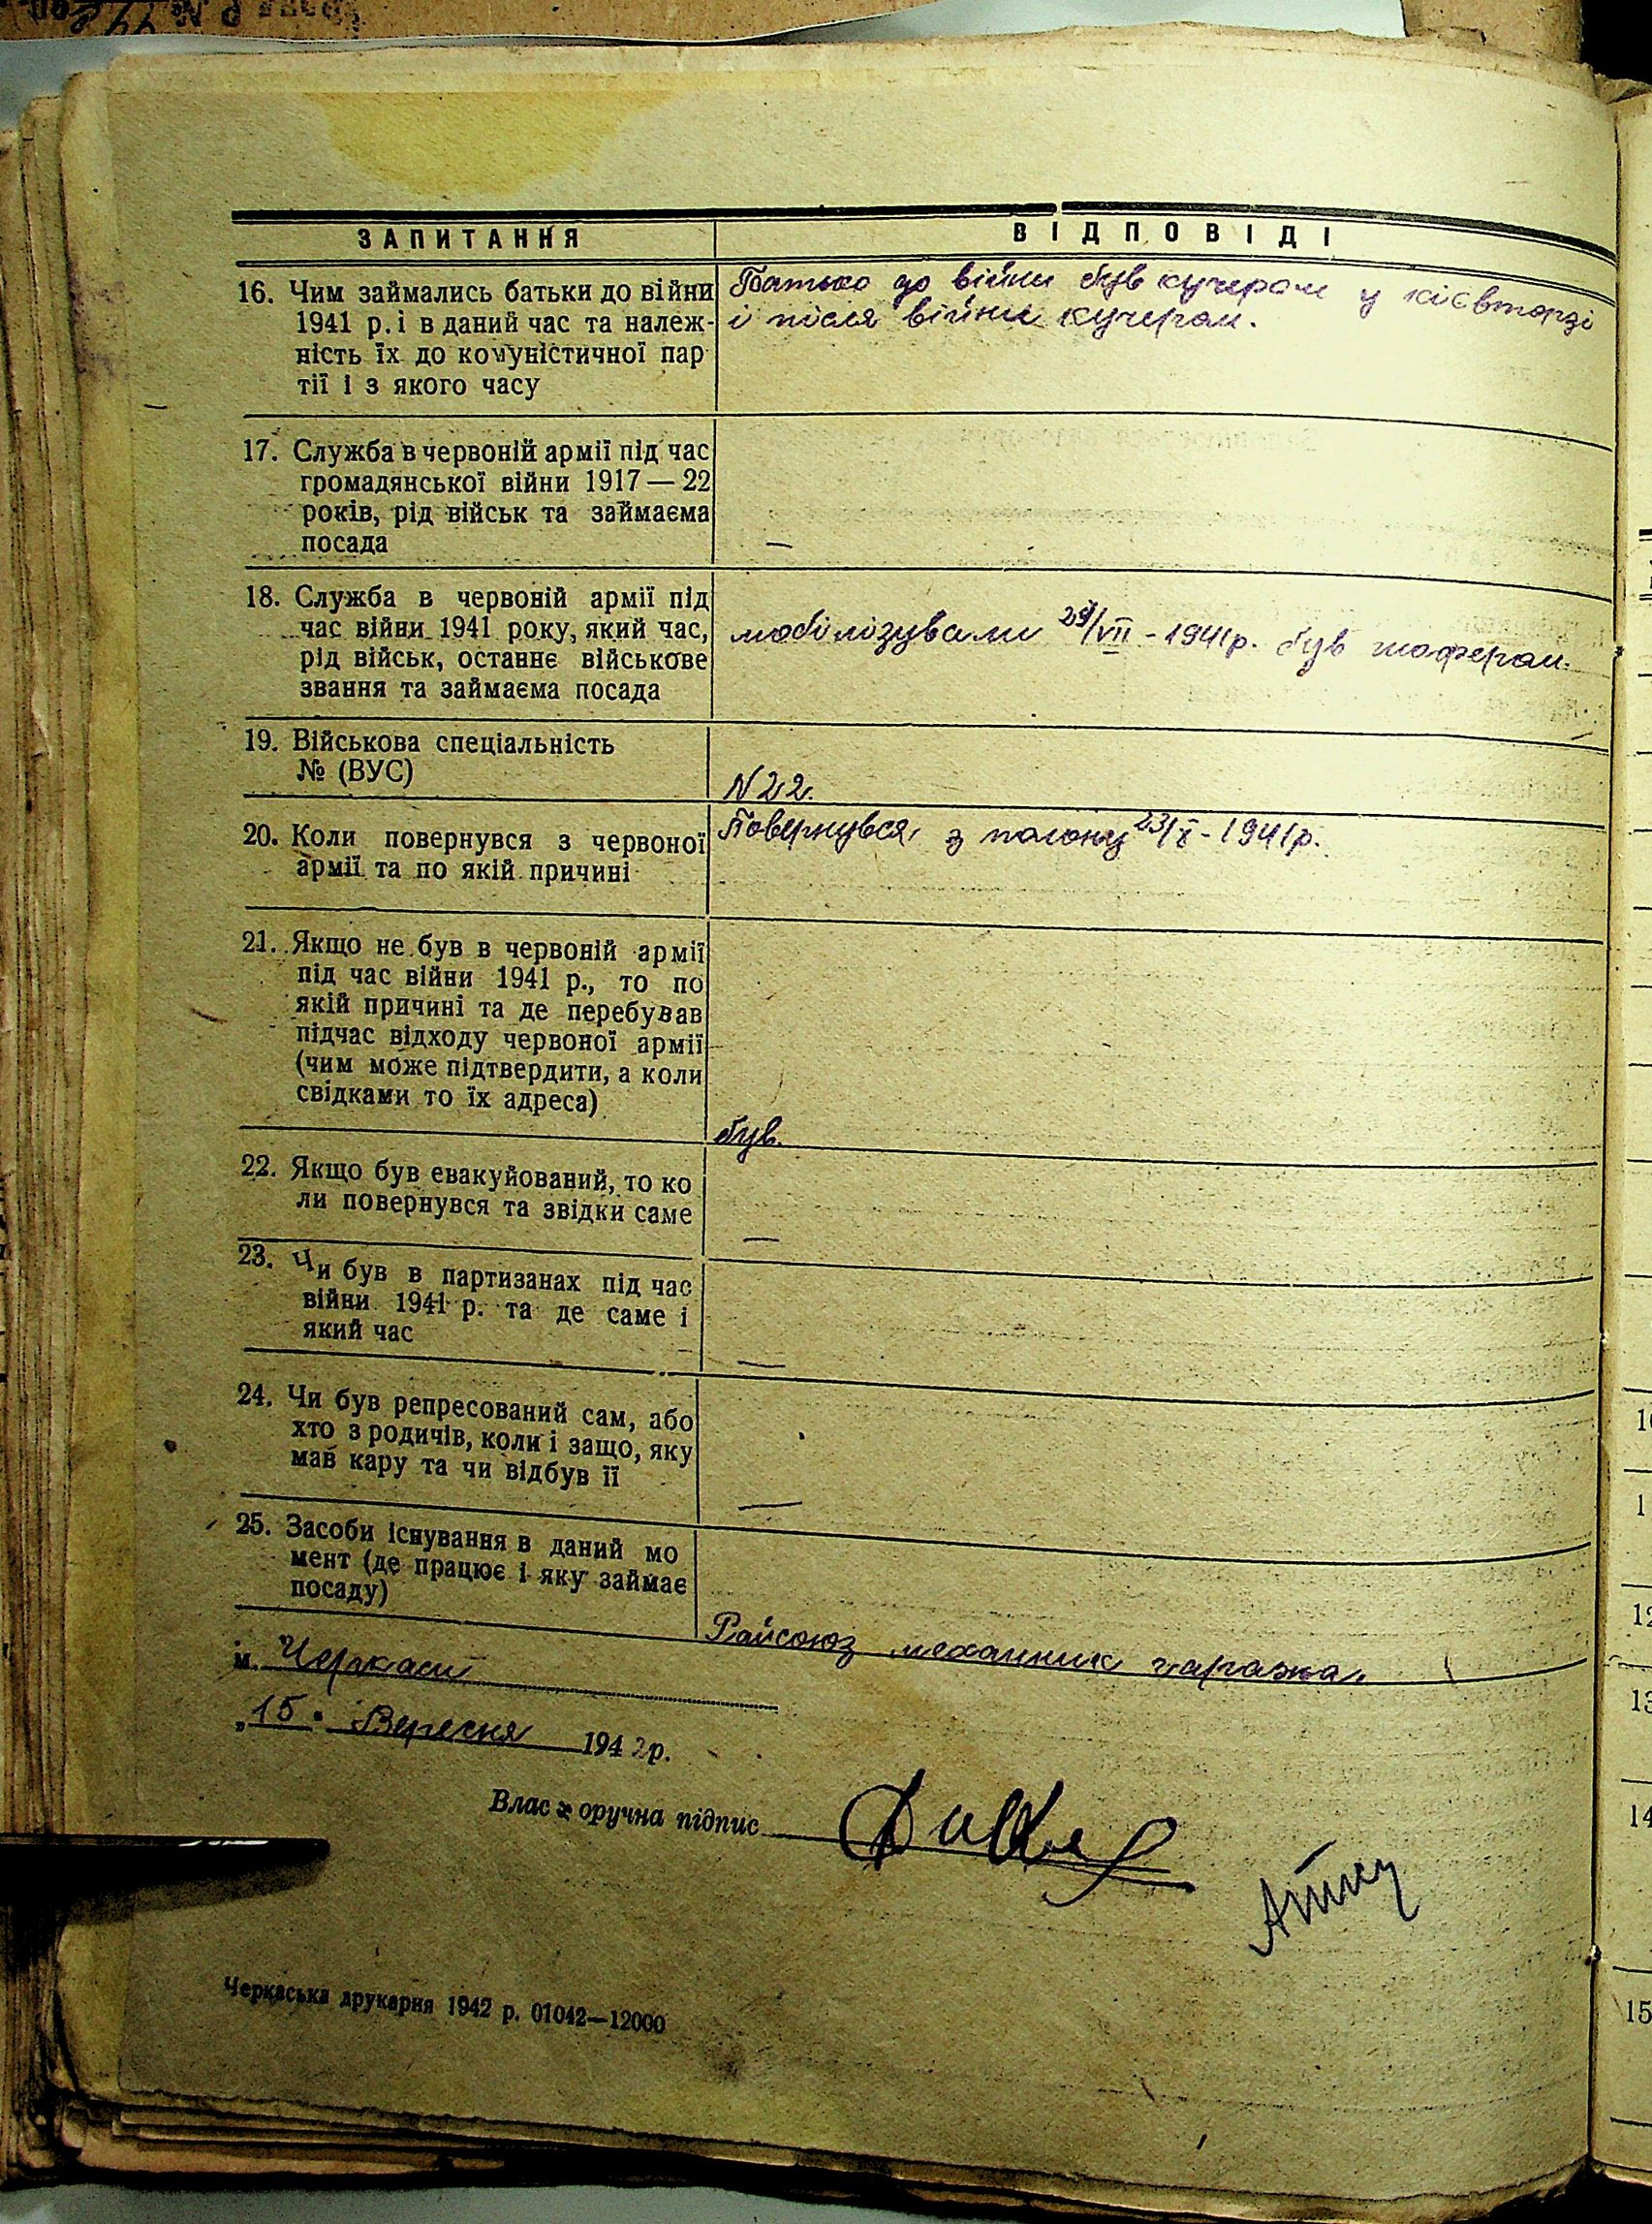 ЗАПИТАННЯ
ВІДПОВІДІ
16. Чим займались батьки до війни
1941 р. і в даний час та належ-
ність їх до комуністичної пар
тії і з якого часу
Батько до війни був кучером у
і після війни кучером.
17. Служба в червоній армії під час
громадянської війни 1917 — 22
років, рід військ та займаєма
посада
—
18. Служба в червоній армії під
час війни 1941 року, який час,
рід військ, останнє військове
звання та займаєма посада
мобілізували /VII - 1941р. був шофером.
19. Військова спеціальність
№ (ВУС)
N 22.
20. Коли повернувся з червоної
армії та по якій причині
Повернувся з полону 23/X - 1941р.
21. Якщо не був в червоній армії
під час війни 1941 р., то по
якій причині та де перебував
підчас відходу червоної армії
(чим може підтвердити, а коли
свідками то їх адреса)
був.
22. Якщо був евакуйований, то ко
ли повернувся та звідки саме
—
23. Чи був в партизанах під час
війни 1941 р. та де саме і
який час
—
24. Чи був репресований сам, або
хто з родичів, коли і защо, яку
мав кару та чи відбув її
—
25. Засоби існування в даний мо
мент (де працює і яку займає
посаду)
Райсоюз механник гаража.
м. Черкаси
„15" Вересня 1942р.
Власноручна підпис
Черкаська друкарня 1942 р. 01042—12000